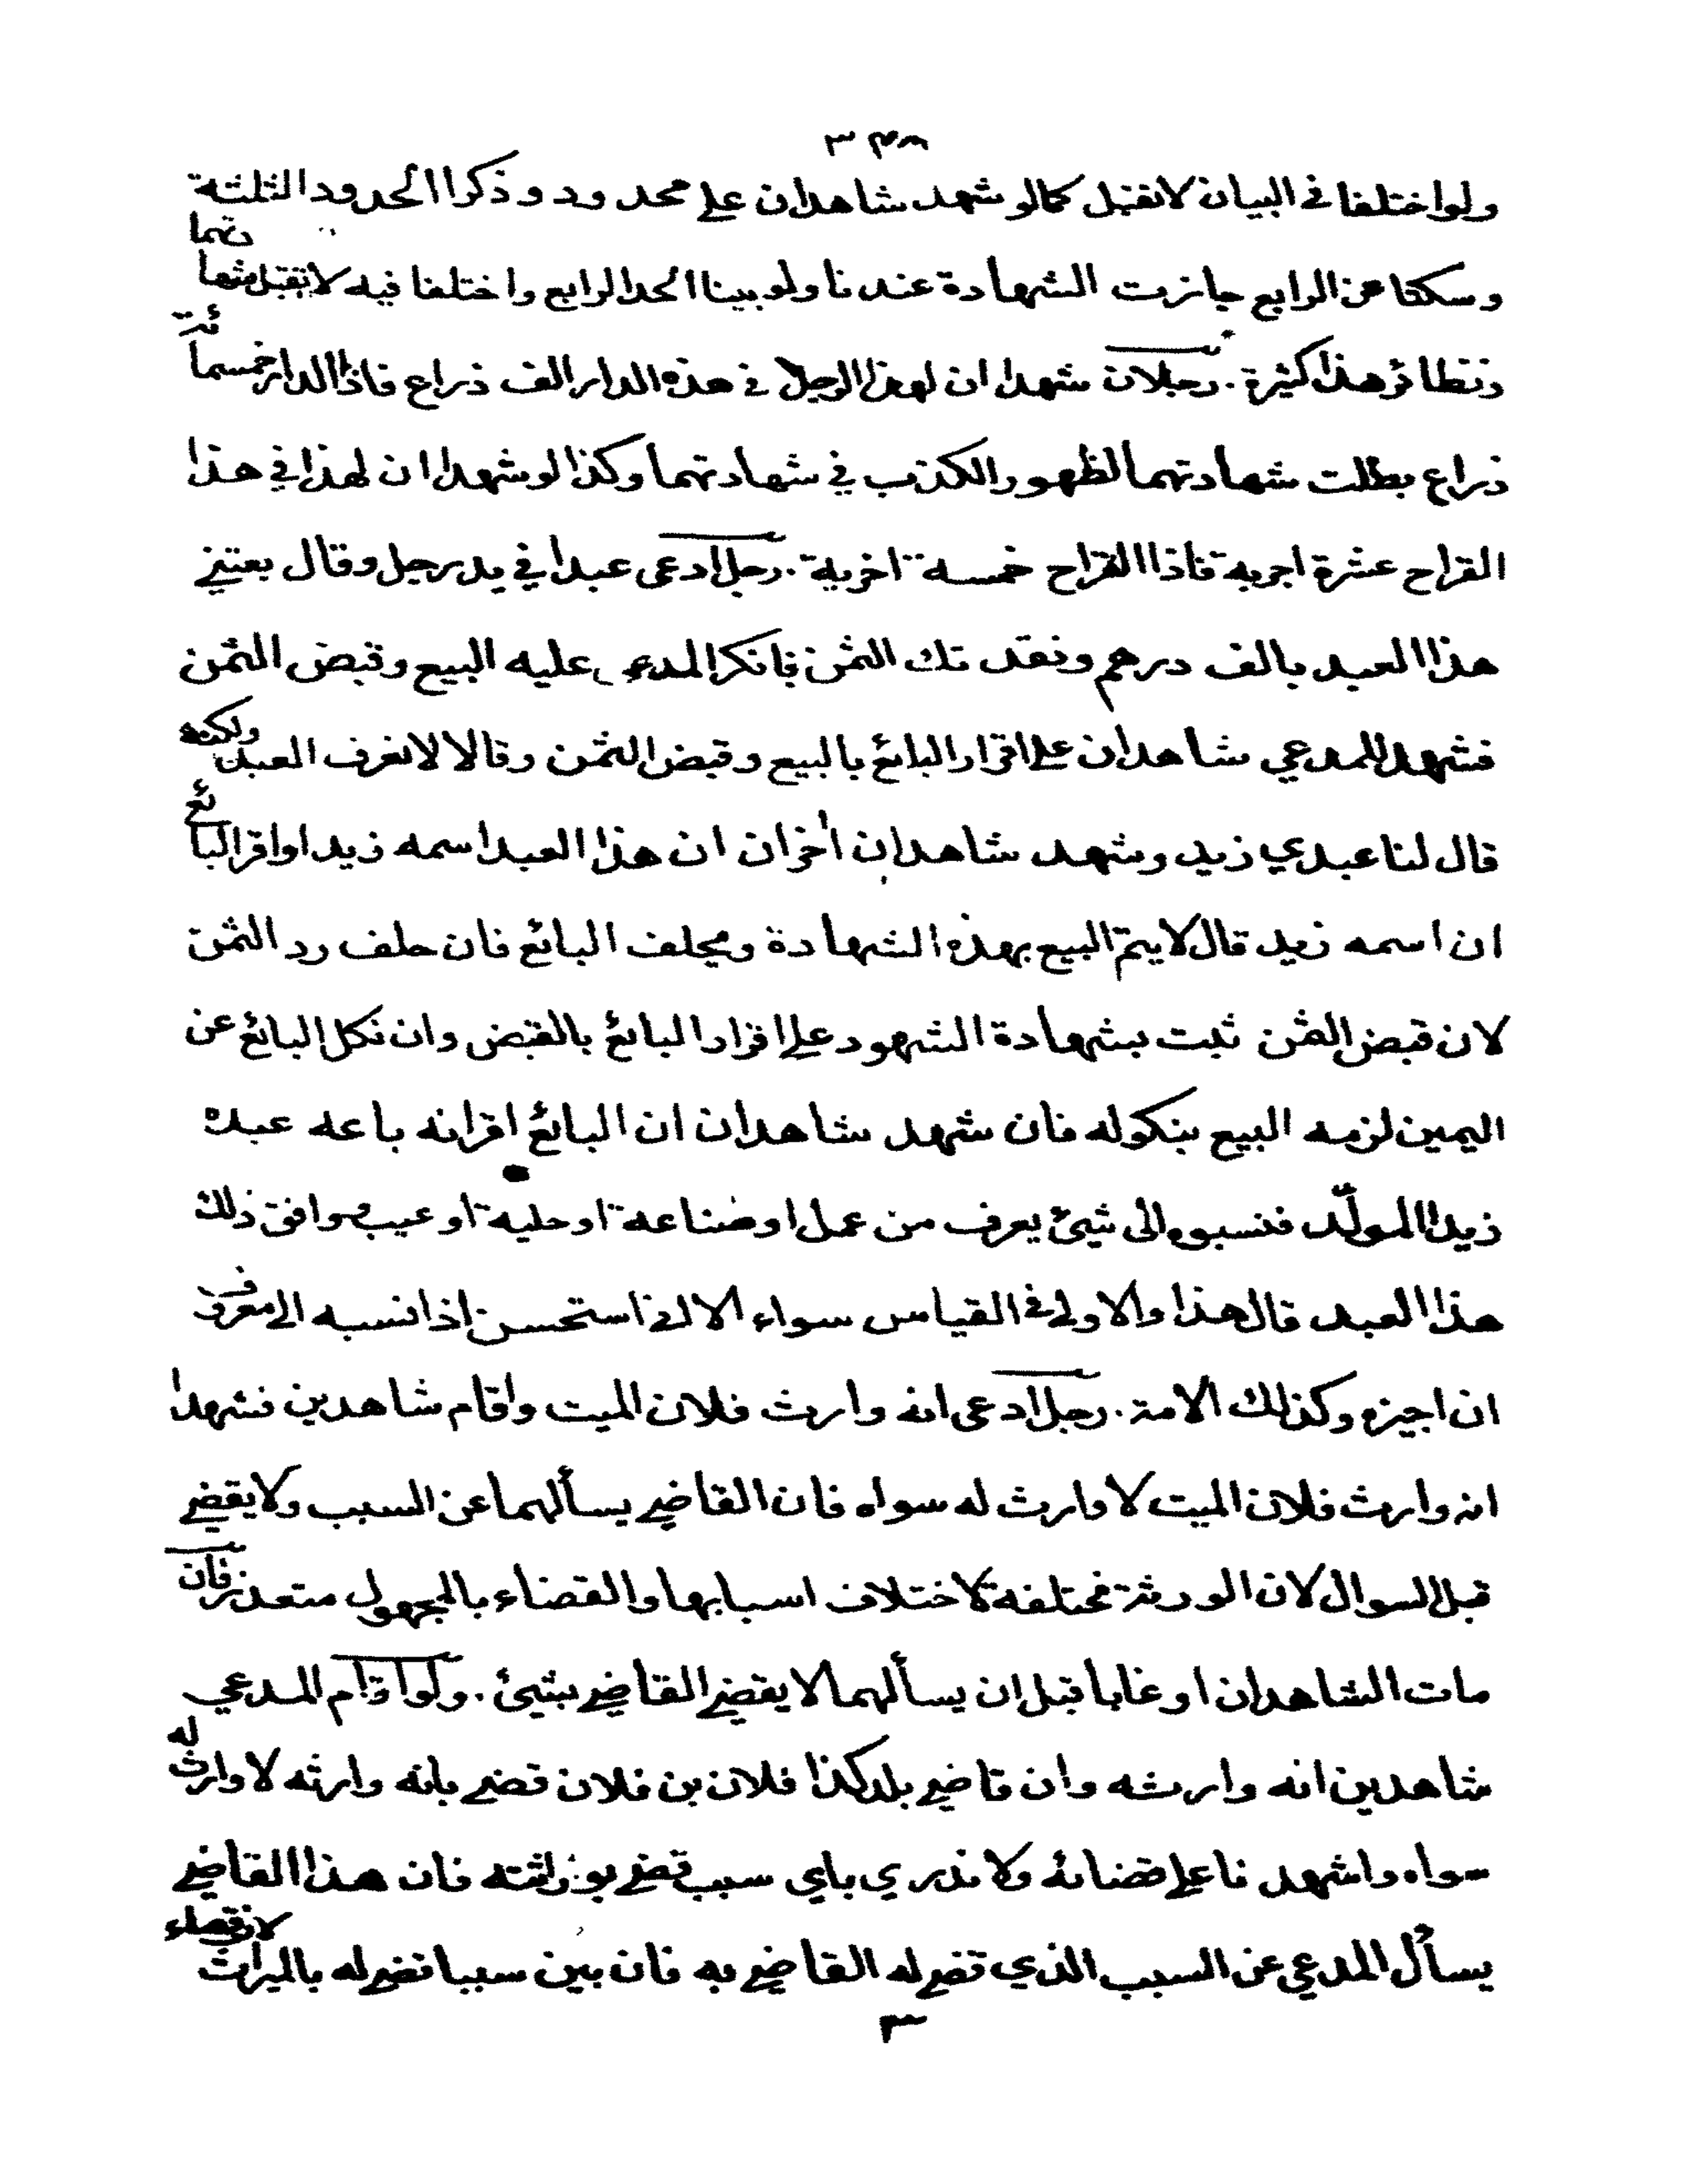 ٣٤٨
ولو اختلفا في البيان لا تقبل كما لو شهد شاهدان على محدود وذكرا الحدود الثلثة
وسكتا عن الرابع جازت الشهادة عندنا ولو بينا الحد الرابع واختلفا فيه لا تقبل شهادتهما
ونظائر هذا كثيرة . رجلان شهدا ان لهذا الرجل في هذه الدار الف ذراع فاذا الدار خمسمائة
ذراع بطلت شهادتهما لظهور الكذب في شهادتهما وكذا لو شهدا ان لهذا في هذا
القراح عشرة اجربة فاذا القراح خمسة اجربة . رجل ادعى عبدا في يد رجل وقال بعتني
هذا العبد بالف درهم ونقدتك الثمن فانكر المدعى عليه البيع وقبض الثمن
فشهد للمدعي شاهدان على اقرار البائع بالبيع وقبض الثمن وقالا لا نعرف العبد ولكنه
قال لنا عبدي زيد وشهد شاهدان اخران ان هذا العبد اسمه زيد او اقر البائع
ان اسمه زيد قال لا يتم البيع بهذه الشهادة ويحلف البائع فان حلف رد الثمن
لان قبض الثمن ثبت بشهادة الشهود على اقرار البائع بالقبض وان نكل البائع عن
اليمين لزمه البيع بنكوله فان شهد شاهدان ان البائع اقر انه باعه عبده
زيدا المولّد فنسبوه الى شيئ يعرف من عمل او صناعة او حلية او عيب فوافق ذلك
هذا العبد قال هذا والاول في القياس سواء الا اني استحسن اذا نسبه الى معروف
ان اجيزه وكذلك الامة . رجل ادعى انه وارث فلان الميت واقام شاهدين فشهدا
انه وارث فلان الميت لا وارث له سواه فان القاضي يسألهما عن السبب ولا يقضي
قبل السوال لان الورثة مختلفة لاختلاف اسبابها والقضاء بالمجهول متعذر فان
مات الشاهدان او غابا قبل ان يسألهما لا يقضي القاضي بشيئ . ولو اقام المدعي
شاهدين انه وارثه وان قاضي بلد كذا فلان بن فلان قضى بانه وارثه لا وارث له
سواه واشهدنا على قضائه ولا ندري باي سبب قضى بوراثته فان هذا القاضي
يسأل المدعي عن السبب الذي قضى له القاضي به فان بين سببا قضى له بالميراث لان قضاء